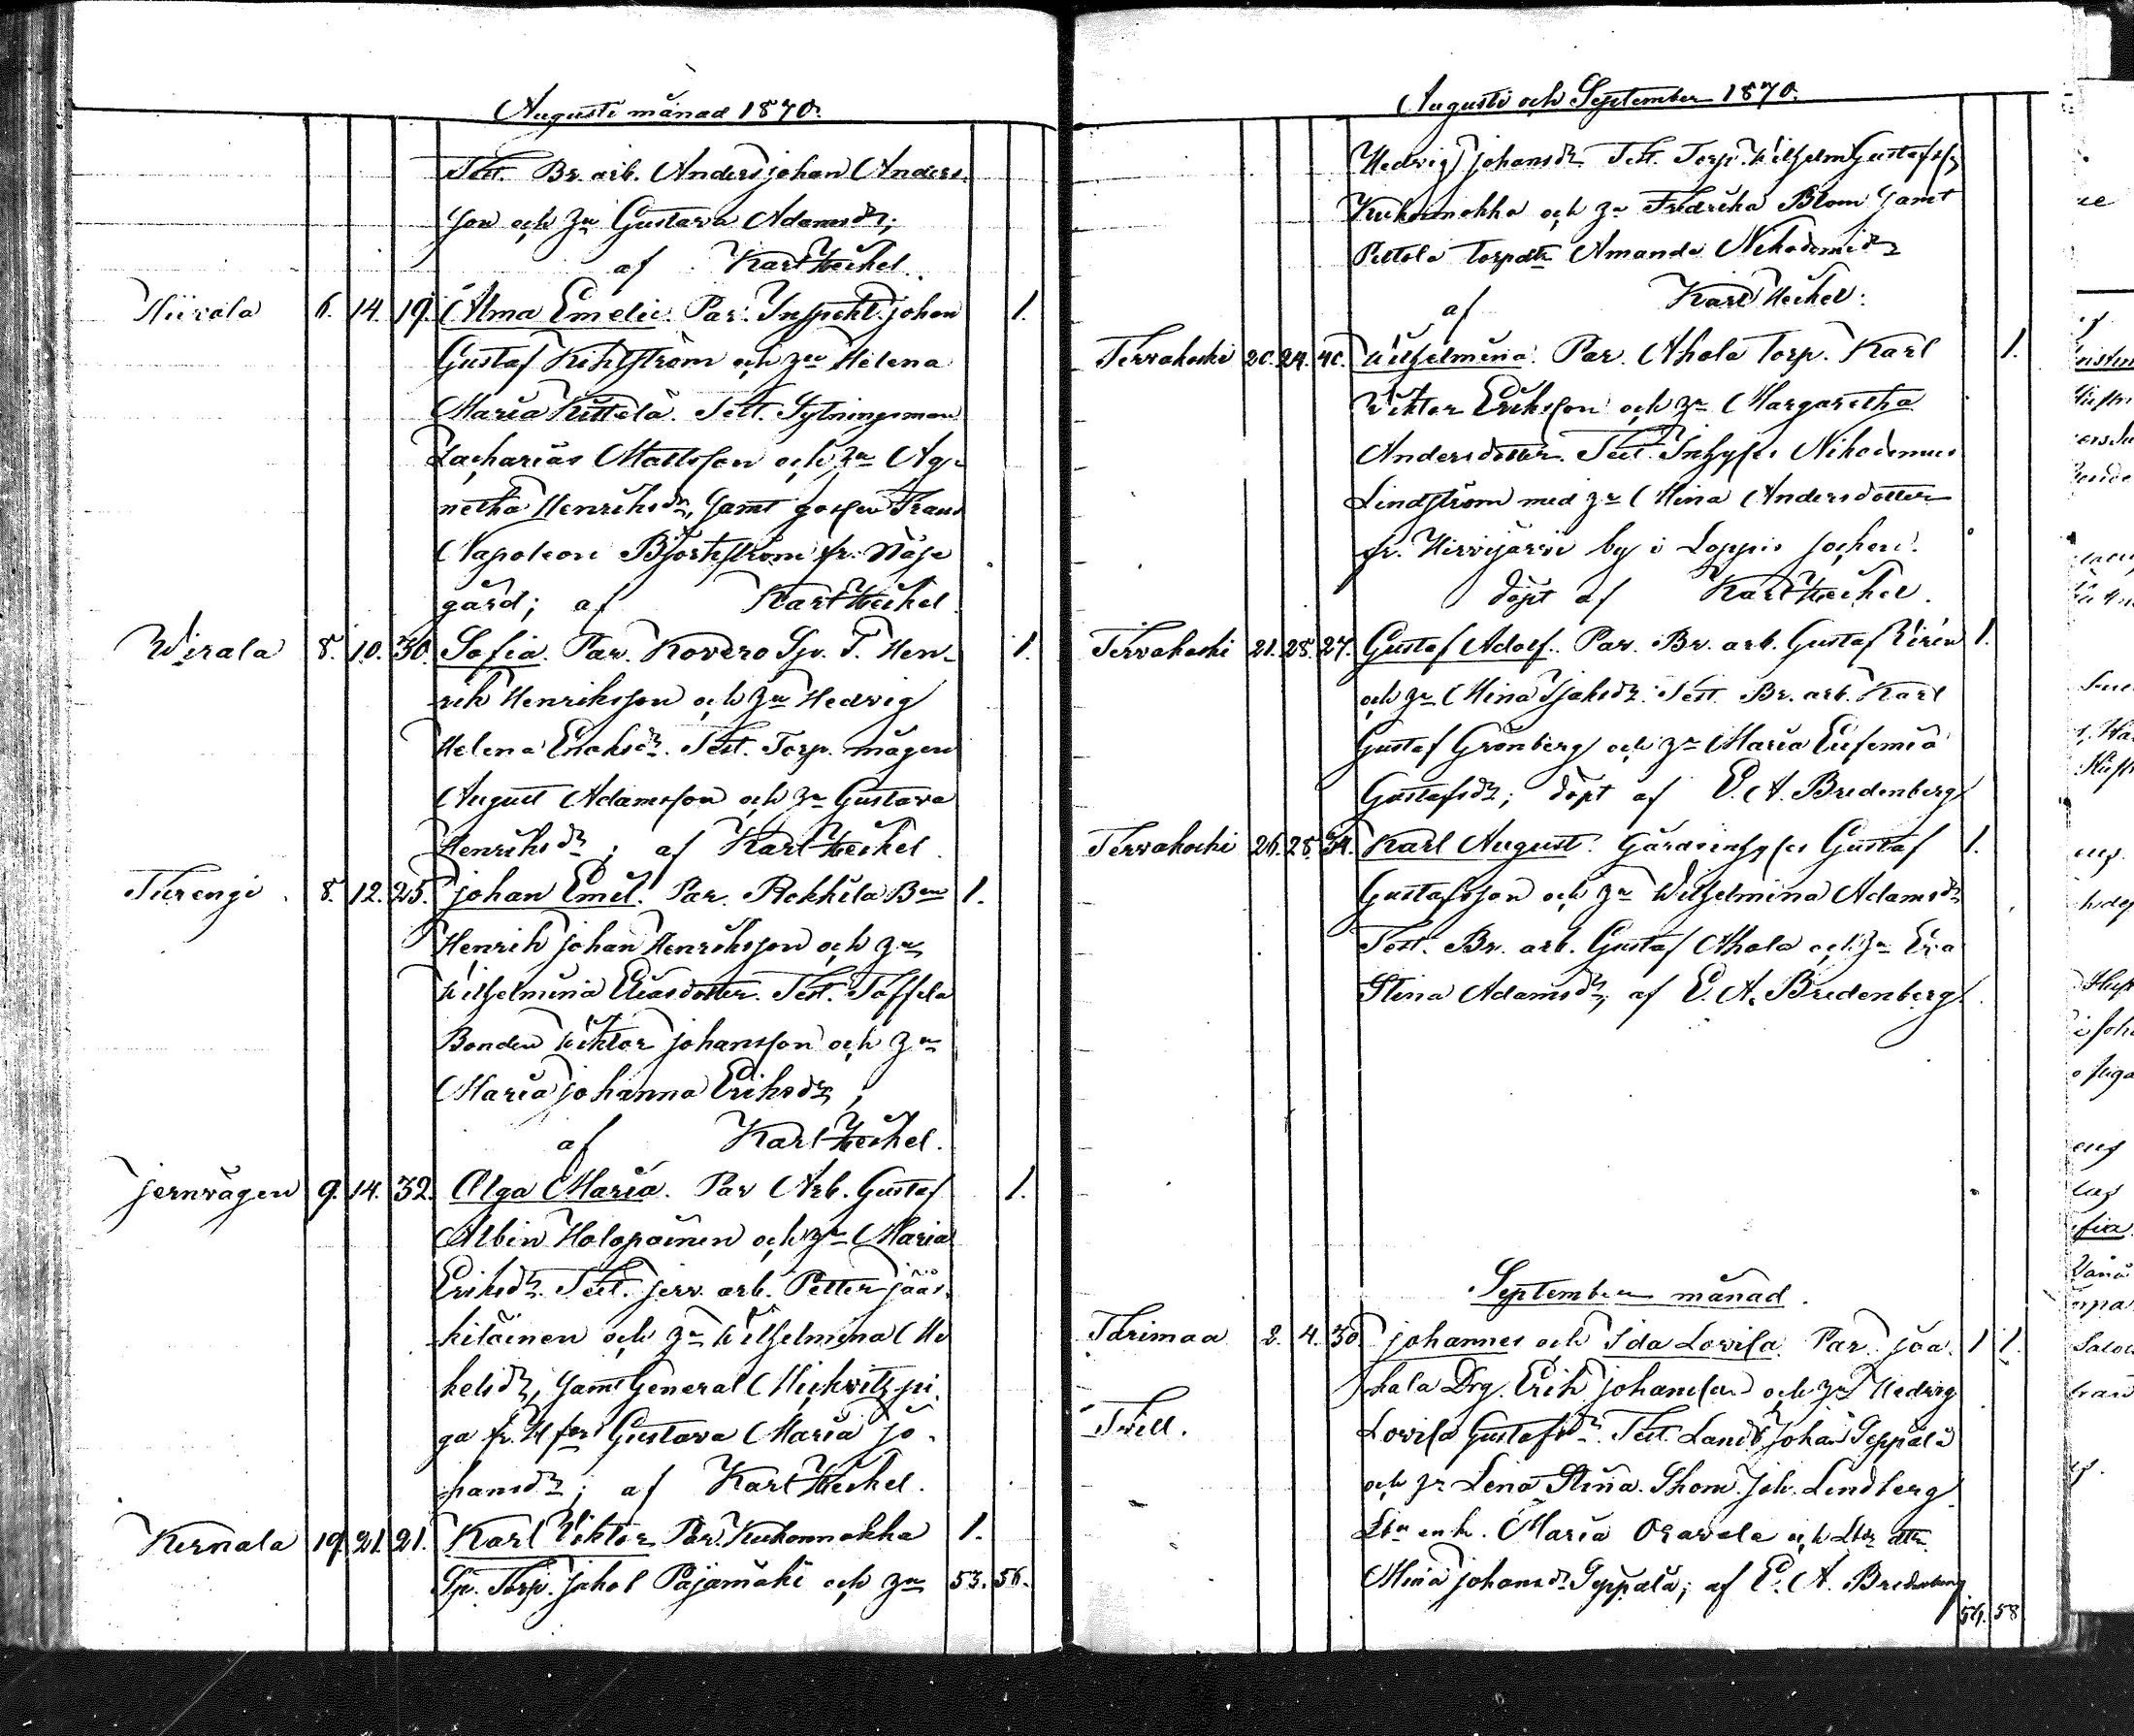 Augusti månad 1870.
Test. Br. arb. Anders Johan Anders-
son och hu Gustava Adamsdr;
af Karl Heikel.
Hiirola 6. 14. 19. Alma Emelie. Par. Inspekt. Johan 1.
Gustaf Kihlström och hu Helena
Maria Kittelä. Test. Sytningsman
Zacharias Mattsson och hu Ag-
netha Henriksdr, samt gossen Frans
Napoleon Björkström fr. Näse
gård; af Karl Heikel
Wirala 8. 10. 30. Sofia. Par. Kovero Sp. T. Hen- 1.
rik Henriksson och hu Hedvig
Helena Enoksdr. Test. Torp. mågen
August Adamsson och hu Gustava
Henriksdr; af Karl Heikel.
Turengi 8. 12. 25. Johan Emil. Par. Rekhila Bn 1.
Henrik Johan Henriksson och hu
Wilhelmina Eliasdotter. Test. Toffila
Bonden Wiktor Johansson och hu
Maria Johanna Eriksdr;
af Karl Heikel.
Jernvägen 9. 14. 32. Olga Maria. Par Arb. Gustaf 1.
Albin Holopainen och hu Maria
Eriksdr. Test. jerv. arb. Petter Jääs-
keläinen och hu Wilhelmina Mi
kelsdr, samt General Mickwitz pi-
ga fr. Hfors Gustava Maria Jo-
hansdr; af Karl Heikel.
Kernala 19. 21. 21. Karl Viktor Par. Kukonnokka 1.
Sp. Torp. Jakob Pajamäki och hu 53. 56.
Augusti och September 1870.
Hedvig Johansdr. Test. Torp. Wilhelm Gustafss
Kukonnokka och hu Fredrika Blom samt
Pettola torpdtr Amanda Nikodemidr
af Karl Heikel.
Tervakoski 20. 24. 40. Wilhelmina. Par. Ahola Torp. Karl 1.
Viktor Eriksson och hu Margaretha
Andersdotter. Test. Inhyses Nikodemus
Lindström med hu Mina Andersdotter
fr. Hirvijärvi by i Loppis socken.
döpt af Karl Heikel.
Tervakoski 21. 28. 27. Gustaf Adolf. Par. Br. arb. Gustaf Virén 1.
och hu Mina Isaksdr. Test. Br. arb. Karl
Gustaf Grönberg och hu Maria Eufemia
Gustafsdr; döpt af E. A. Bredenberg
Tervakoski 26. 28. 34. Karl August. Gårdsinhyses Gustaf 1.
Gustafsson och hu Wilhelmina Adamsdr
Test. Br. arb. Gustaf Ahola och hu Eva
Stina Adamsdr, af E. A. Bredenberg.
September månad.
Tarimaa 2. 4. 30 Johannes och Ida Lovisa. Par. Jaa- 1 1.
kala Drg. Erik Johansson och hu Hedvig
Tvill. Lovisa Gustafsdr. Test. Landb. Johan Seppälä
och hu Lena Stina. Skom. Joh. Lindberg
Lbn enk. Maria Oravala och Lbr dtr.
Mina Johansdr Seppälä; af E. A. Bredenberg
54. 58